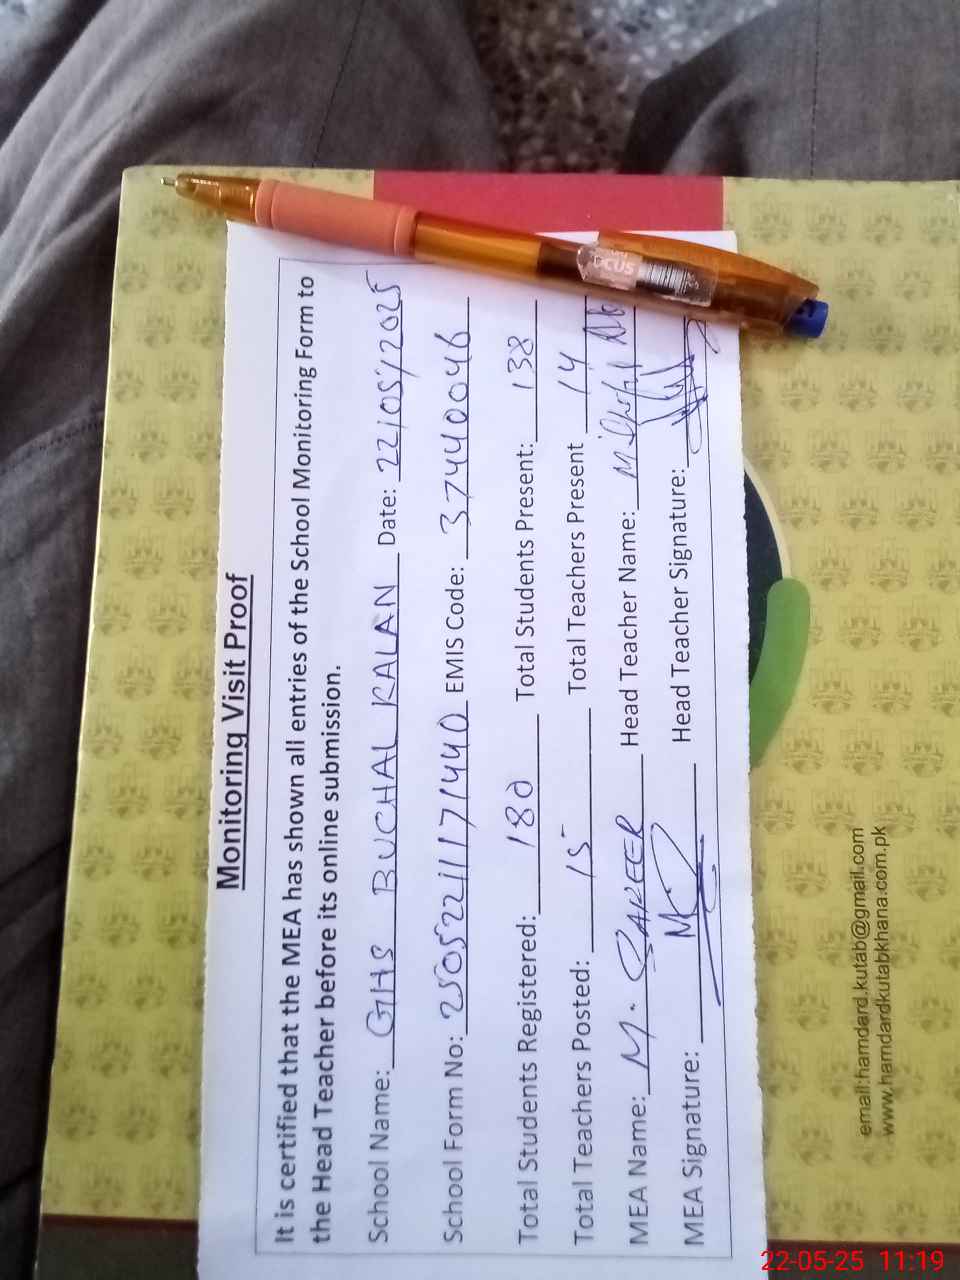 Monitoring Visit Proof
It is certified that the MEA has shown all entries of the School Monitoring Form to
the Head Teacher before its online submission.
School Name: GHS BUCHAL KALAN Date: 22/05/2025
School Form No: 250522111171440 EMIS Code: 37440046
Total Students Registered: 180 Total Students Present: 138
Total Teachers Posted: 15 Total Teachers Present 14
MEA Name: M. SAKEER Head Teacher Name: M
MEA Signature: Head Teacher Signature:
OCUS
email:hamdard.kutab@gmail.com
www.hamdardkutabkhana.com.pk
22-05-25 11:19